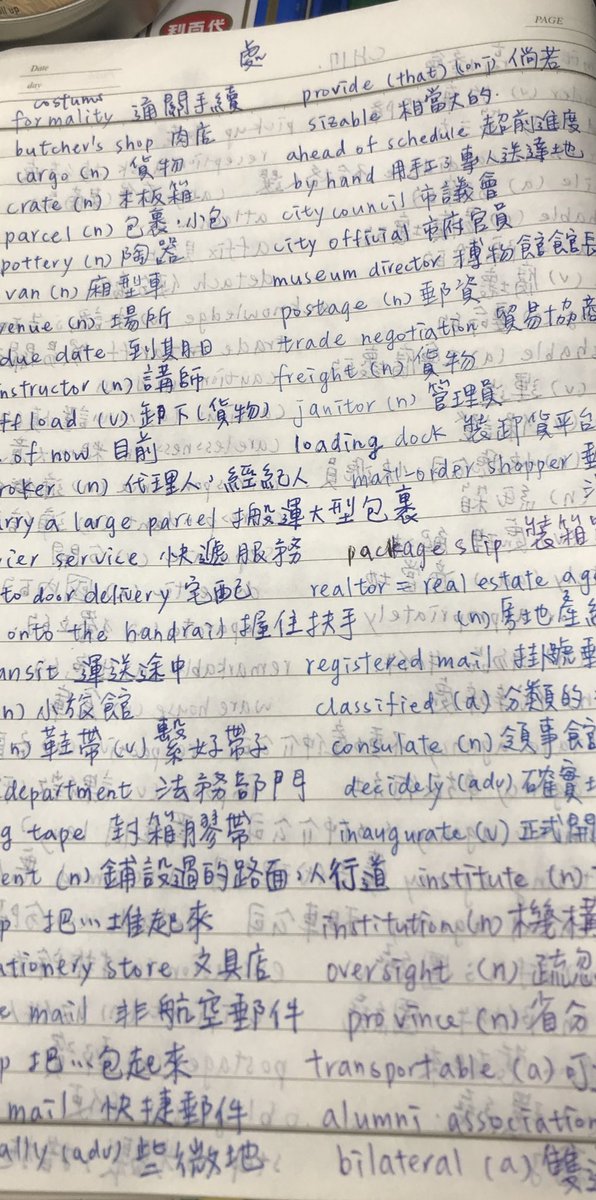 利百代
Date
day
PAGE
處
costums
formality 通關手續 provide (that) (conj) 倘若
butcher's shop 肉店 sizable 相當大的.
cargo (n) 貨物 ahead of schedule 超前進度
crate (n) 木板箱 by hand
parcel (n) 包裹,小包 city council 市議會
pottery (n) 陶器 city official 市府官員
van (n) 廂型車 museum director 博物館館長
venue (n) 場所 postage (n) 郵資
due date 到期日 trade negotiation 貿易協商
nstructor (n) 講師 freight (n) 貨物
ffload (v) 卸下(貨物) janitor (n) 管理員
of now 目前 loading dock 裝卸貨平台
roker (n) 代理人,經紀人 mail-order shopper 郵
rry a large parcel 搬運大型包裹
ier service 快遞服務 package slip 裝箱
to door delivery 宅配 realtor = real estate age
onto the handrail 握住扶手 (n) 房地產經
ansit 運送途中 registered mail 掛號郵
n) 小旅館 classified (a) 分類的
n) 鞋帶 (v) 繫好帶子 consulate (n) 領事館
department 法務部門 decidely (adv) 確實地
g tape 封箱膠帶 inaugurate (v) 正式開
ent (n) 鋪設過的路面,人行道 institute (n)
p 把…堆起來 institution (n) 機構
ationery store 文具店 oversight (n) 疏忽
e mail 非航空郵件 province (n) 省分
p 把…包起來 transportable (a) 可
mail 快捷郵件 alumni association
ally (adv) 些微地 bilateral (a) 雙